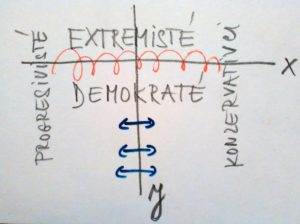 EXTREMISTÉ
PROGRESIVISTÉ
KONZERVATIVCI
x
DEMOKRATÉ
y